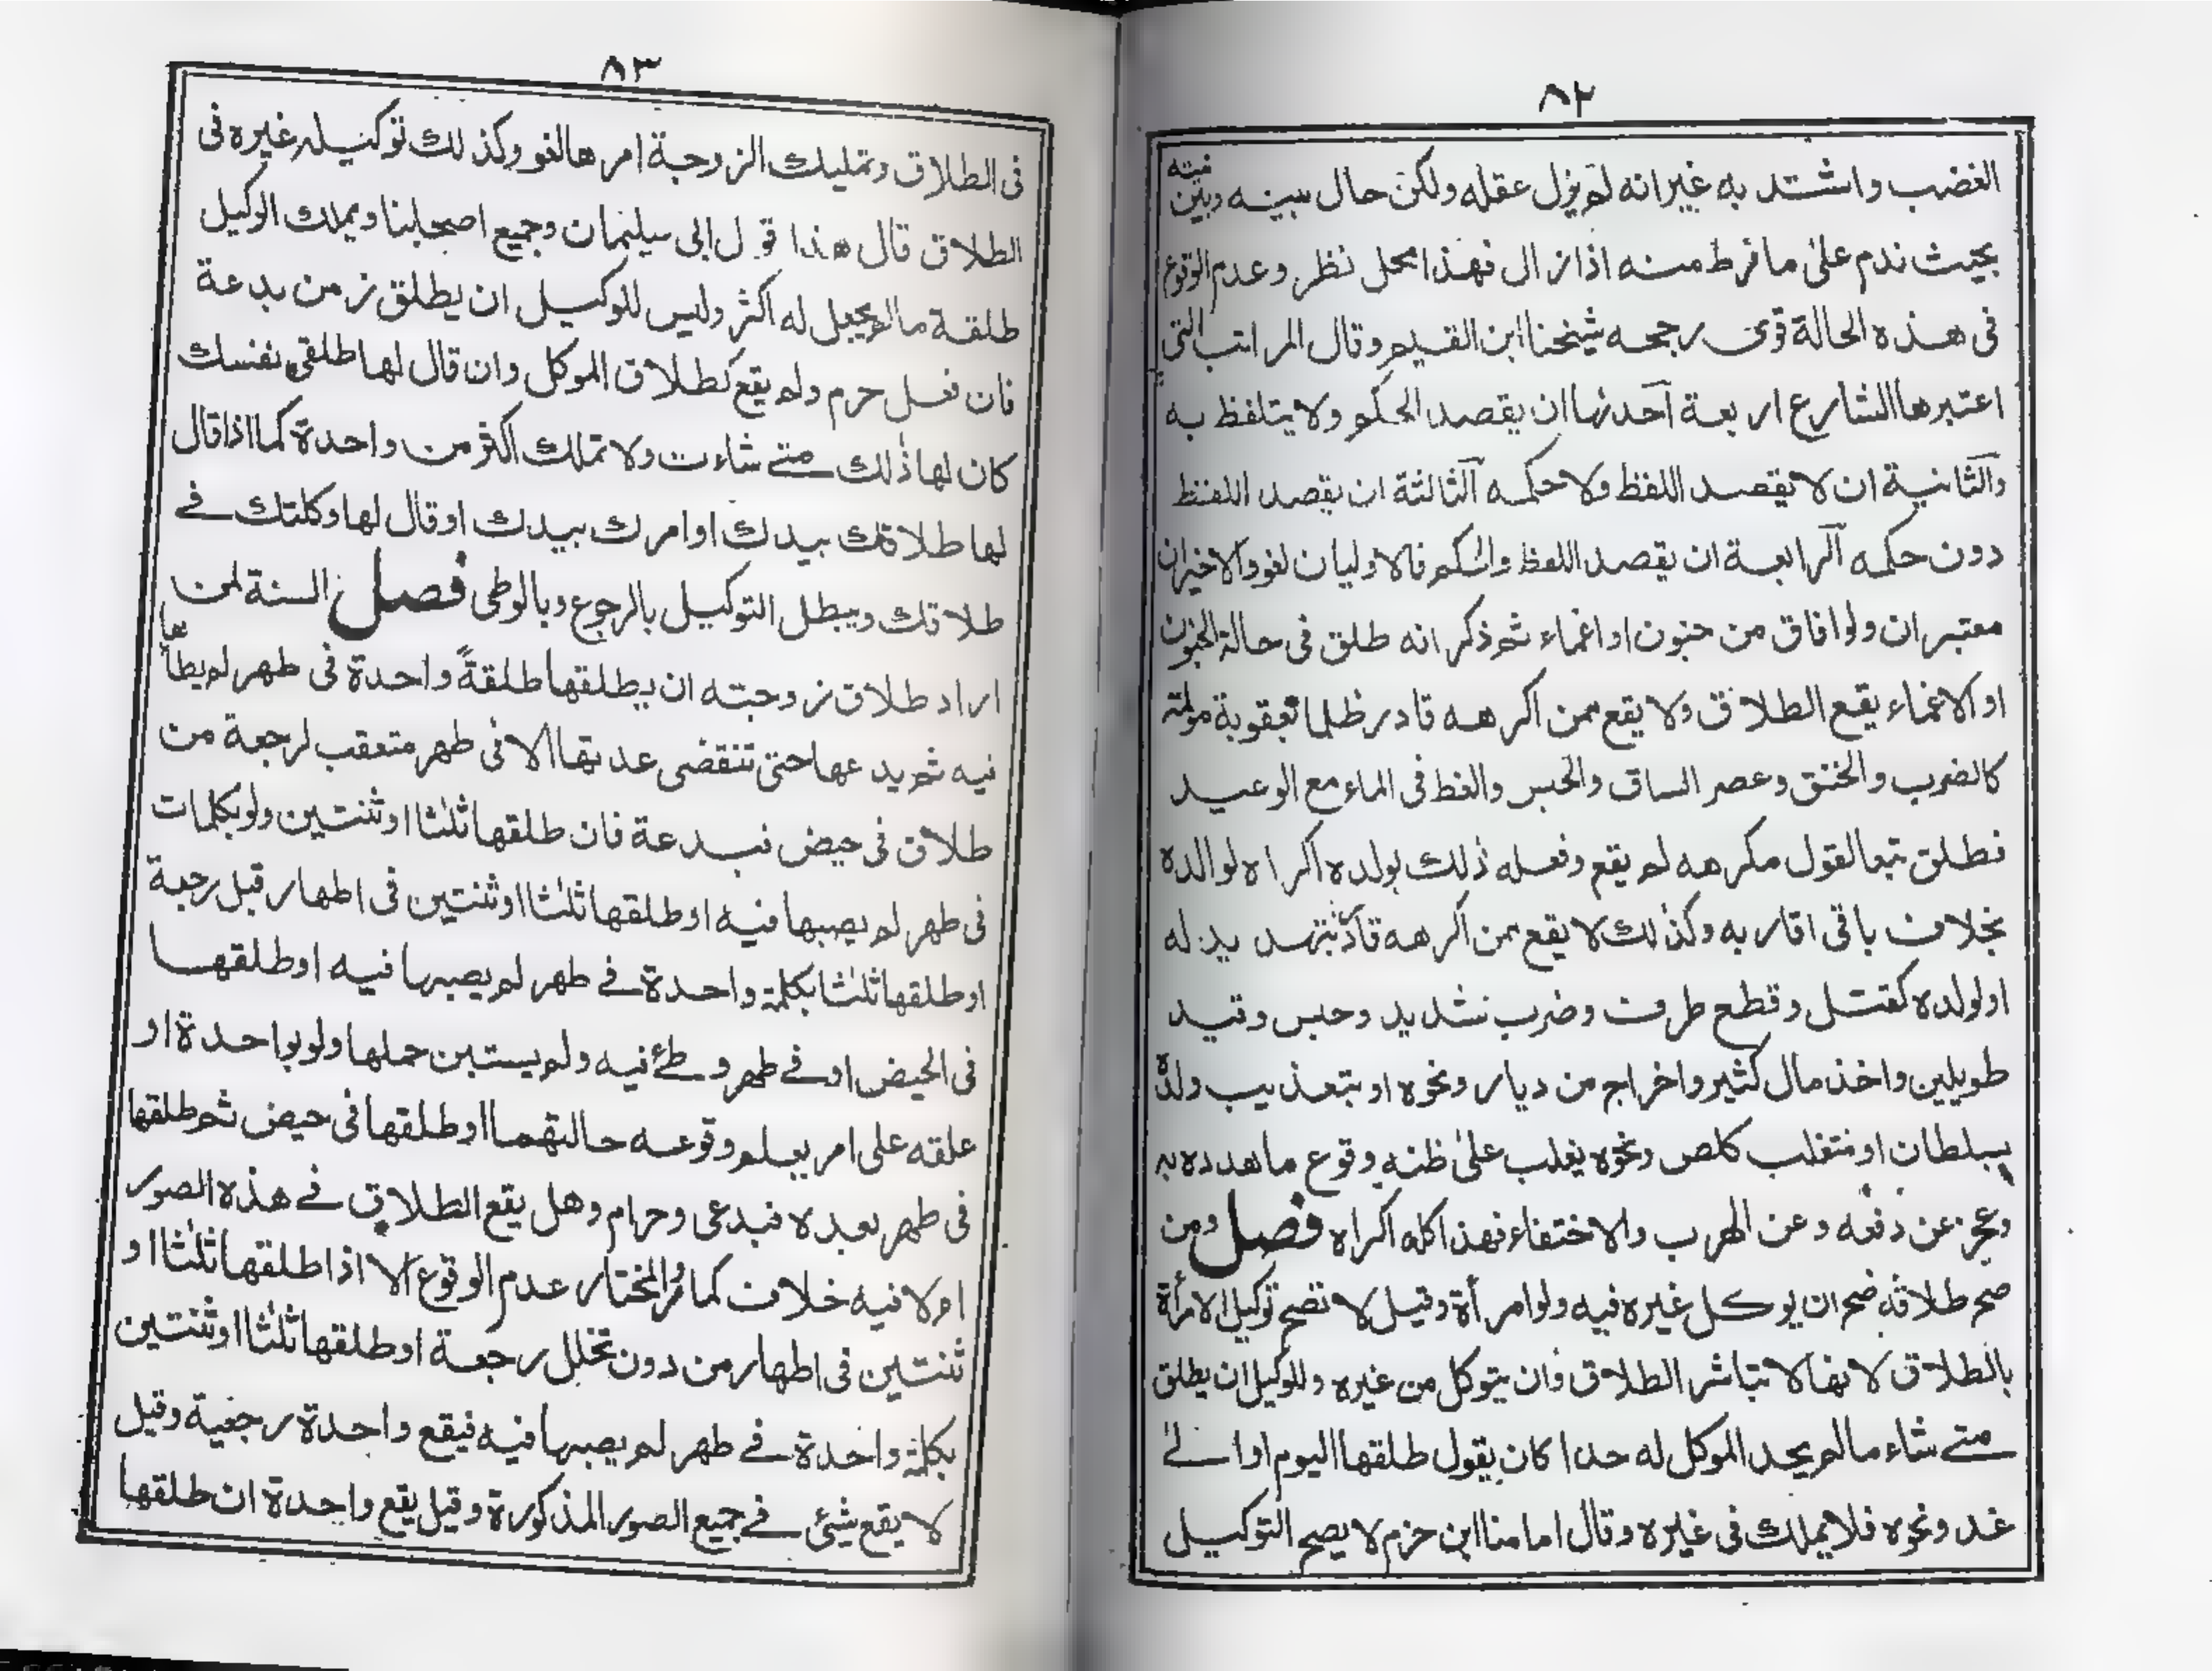 ٨٢
الغضب واشتد به غيرانه لم يزل عقله ولكن حال بينه وبين نيته
بحيث ندم على ما فرط منه اذا زال فهذا محل نظر وعدم الوقوع
فى هذه الحالة قوى رجحه شيخنا ابن القيم وقال المراتب التى
اعتبرها الشارع اربعة آحدها ان يقصد الحكم ولا يتلفظ به
والثانية ان لا يقصد اللفظ ولا حكمه آلثالثة ان يقصد اللفظ
دون حكمه آلرابعة ان يقصد اللفظ والحكم فالاوليان لغو والاخيران
معتبران ولوا فاق من جنون او اغماء ثم ذكر انه طلق فى حالة الجنون
او الاغماء يقع الطلاق ولا يقع ممن اكرهه قادر ظلما بعقوبة مولمة
كالضرب والخنق وعصر الساق والحبس والغط فى الماء مع الوعيد
فطلق تبعا لقول مكرهه لم يقع وفعله ذلك بولده اكراه لوالده
بخلاف باقى اقاربه وكذلك لا يقع ممن اكرهه قادر بتهديد له
اولولده كقتل وقطع طرف وضرب شديد وحبس وقيد
طويلين واخذ مال كثير واخراج من ديار ونحوه او بتعذيب ولده
بسلطان او متغلب كلص ونحوه يغلب على ظنه وقوع ما هدده به
وعجز عن دفعه وعن الهرب والاختفاء فهذا كله اكراه فصل ومن
صح طلاقه صح ان يوكل غيره فيه ولو امرأة وقيل لا تصح توكيل الامرأة
بالطلاق لانها لا تباشر الطلاق وان يتوكل من غيره وللوكيل ان يطلق
متے شاء ما لم يحد الموكل له حدا كان يقول طلقها اليوم او الے
غد ونحوه فلا يملك فى غيره وقال امامنا ابن حزم لا يصح التوكيل
٨٣
فى الطلاق وتمليك الزوجة امرها لغو وكذلك توكيله غيره فى
الطلاق قال هذا قول ابى سليمان وجميع اصحابنا ويملك الوكيل
طلقة ما لم يجعل له اكثر وليس للوكيل ان يطلق زمن بدعة
فان فعل حرم ولم يقع كطلاق الموكل وان قال لها طلقى نفسك
كان لها ذلك متے شاءت ولا تملك اكثر من واحدة كما اذا قال
لها طلاقك بيدك او امرك بيدك او قال لها وكلتك فے
طلاقك ويبطل التوكيل بالرجوع وبالوطى فصل السنة لمن
اراد طلاق زوجته ان يطلقها طلقةً واحدة فى طهر لم يطأها
فيه ثم يدعها حتى تنقضى عدتها الا فى طهر متعقب لرجعة من
طلاق فى حيض فبدعة فان طلقها ثلثا او ثنتين ولو بكلمات
فى طهر لم يصبها فيه او طلقها ثلثا او ثنتين فى اطهار قبل رجعة
او طلقها ثلثا بكلمة واحدة فے طهر لم يصبها فيه او طلقها
فى الحيض او فے طهر وطئ فيه ولم يستبن حملها ولو بواحدة او
علقه على امر يعلم وقوعه حالتهما او طلقها فى حيض ثم طلقها
فى طهر بعده فبدعى وحرام وهل يقع الطلاق فے هذه الصور
اولا فيه خلاف كما مر والمختار عدم الوقوع الا اذا طلقها ثلثا او
ثنتين فى اطهار من دون تخلل رجعة او طلقها ثلثا او ثنتين
بكلمة واحدة فے طهر لم يصبها فيه فيقع واحدة رجعية وقيل
لا يقع شئ فے جميع الصور المذكورة وقيل يقع واحدة ان طلقها